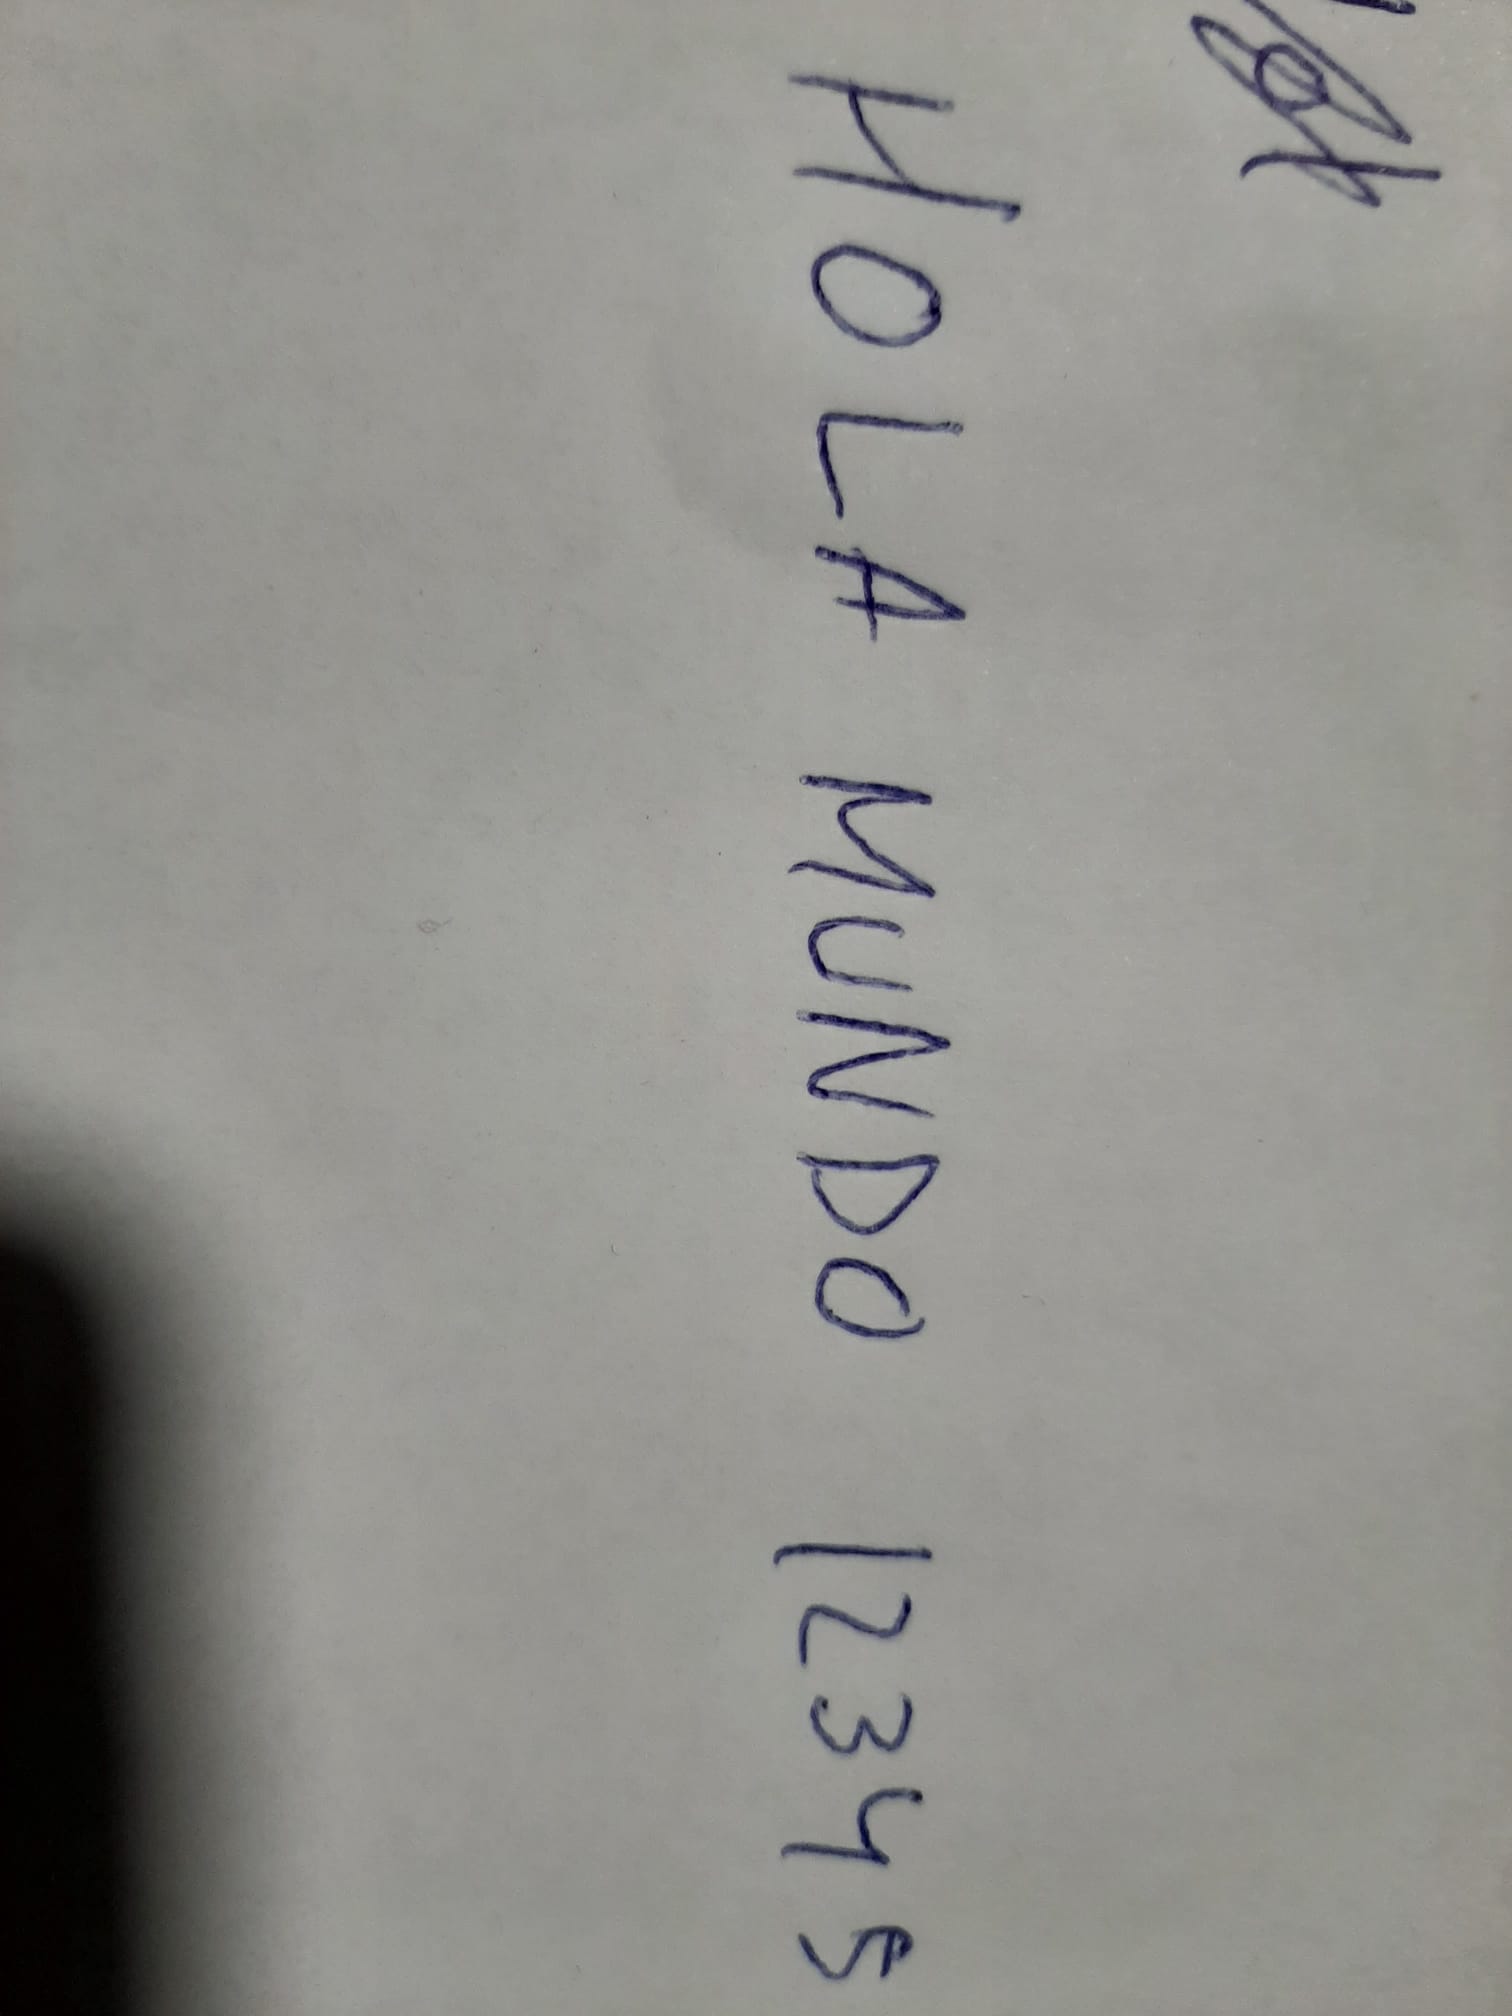 HOLA MUNDO 12345